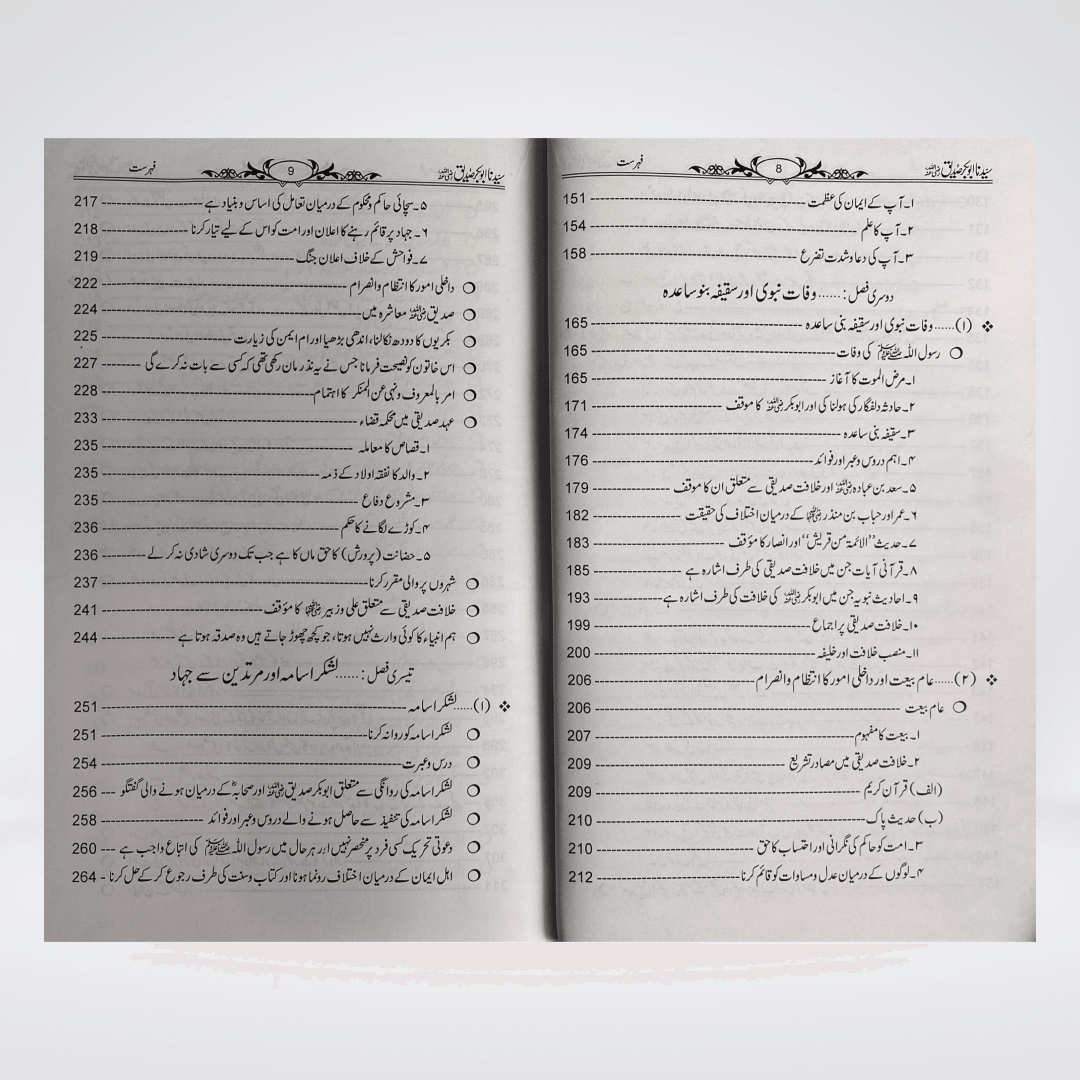 سیدنا ابوبکر صدیق رضی اللہ عنہ 8 فہرست
۱۔ آپ کے ایمان کی عظمت 151
۲۔ آپ کا علم 154
۳۔ آپ کی دعا و شدت تضرع 158
دوسری فصل: ...... وفات نبوی اور سقیفہ بنو ساعدہ
❖ (۱)...... وفات نبوی اور سقیفہ بنی ساعدہ 165
○ رسول اللہ ﷺ کی وفات 165
۱۔ مرض الموت کا آغاز 165
۲۔ حادثہ دلفگار کی ہولناکی اور ابوبکر رضی اللہ عنہ کا موقف 171
۳۔ سقیفہ بنی ساعدہ 174
۴۔ اہم دروس و عبر اور فوائد 176
۵۔ سعد بن عبادہ رضی اللہ عنہ اور خلافت صدیقی سے متعلق ان کا موقف 179
۶۔ عمر اور حباب بن منذر رضی اللہ عنہما کے درمیان اختلاف کی حقیقت 182
۷۔ حدیث ’’الائمۃ من قریش‘‘ اور انصار کا مؤقف 183
۸۔ قرآنی آیات جن میں خلافت صدیقی کی طرف اشارہ ہے 185
۹۔ احادیث نبویہ جن میں ابوبکر رضی اللہ عنہ کی خلافت کی طرف اشارہ ہے 193
۱۰۔ خلافت صدیقی پر اجماع 199
۱۱۔ منصب خلافت اور خلیفہ 200
❖ (۲)...... عام بیعت اور داخلی امور کا انتظام و انصرام 206
○ عام بیعت 206
۱۔ بیعت کا مفہوم 207
۲۔ خلافت صدیقی میں مصادر تشریع 209
(الف) قرآن کریم 209
(ب) حدیث پاک 210
۳۔ امت کو حاکم کی نگرانی اور احتساب کا حق 210
۴۔ لوگوں کے درمیان عدل و مساوات کو قائم کرنا 212
سیدنا ابوبکر صدیق رضی اللہ عنہ 9 فہرست
۵۔ سچائی حاکم و محکوم کے درمیان تعامل کی اساس و بنیاد ہے 217
۶۔ جہاد پر قائم رہنے کا اعلان اور امت کو اس کے لیے تیار کرنا 218
۷۔ فواحش کے خلاف اعلان جنگ 219
○ داخلی امور کا انتظام و انصرام 222
○ صدیق رضی اللہ عنہ معاشرہ میں 224
○ بکریوں کا دودھ نکالنا، اندھی بڑھیا اور ام ایمن کی زیارت 225
○ اس خاتون کو نصیحت فرمانا جس نے یہ نذر مان رکھی تھی کہ کسی سے بات نہ کرے گی 227
○ امر بالمعروف و نہی عن المنکر کا اہتمام 228
○ عہد صدیقی میں محکمہ قضاء 233
۱۔ قصاص کا معاملہ 235
۲۔ والد کا نفقہ اولاد کے ذمہ 235
۳۔ مشروع دفاع 235
۴۔ کوڑے لگانے کا حکم 236
۵۔ حضانت (پرورش) کا حق ماں کا ہے جب تک دوسری شادی نہ کر لے 236
○ شہروں پر والی مقرر کرنا 237
○ خلافت صدیقی سے متعلق علی و زبیر رضی اللہ عنہما کا مؤقف 241
○ ہم انبیاء کا کوئی وارث نہیں ہوتا، جو کچھ چھوڑ جاتے ہیں وہ صدقہ ہوتا ہے 244
تیسری فصل: ...... لشکر اسامہ اور مرتدین سے جہاد
❖ (۱)...... لشکر اسامہ 251
○ لشکر اسامہ کو روانہ کرنا 251
○ درس و عبرت 254
○ لشکر اسامہ کی روانگی سے متعلق ابوبکر صدیق رضی اللہ عنہ اور صحابہؓ کے درمیان ہونے والی گفتگو 256
○ لشکر اسامہ کی تنفیذ سے حاصل ہونے والے دروس و عبر اور فوائد 258
○ دعوتی تحریک کسی فرد پر منحصر نہیں اور ہر حال میں رسول اللہ ﷺ کی اتباع واجب ہے 260
○ اہل ایمان کے درمیان اختلاف رونما ہونا اور کتاب و سنت کی طرف رجوع کر کے حل کرنا 264